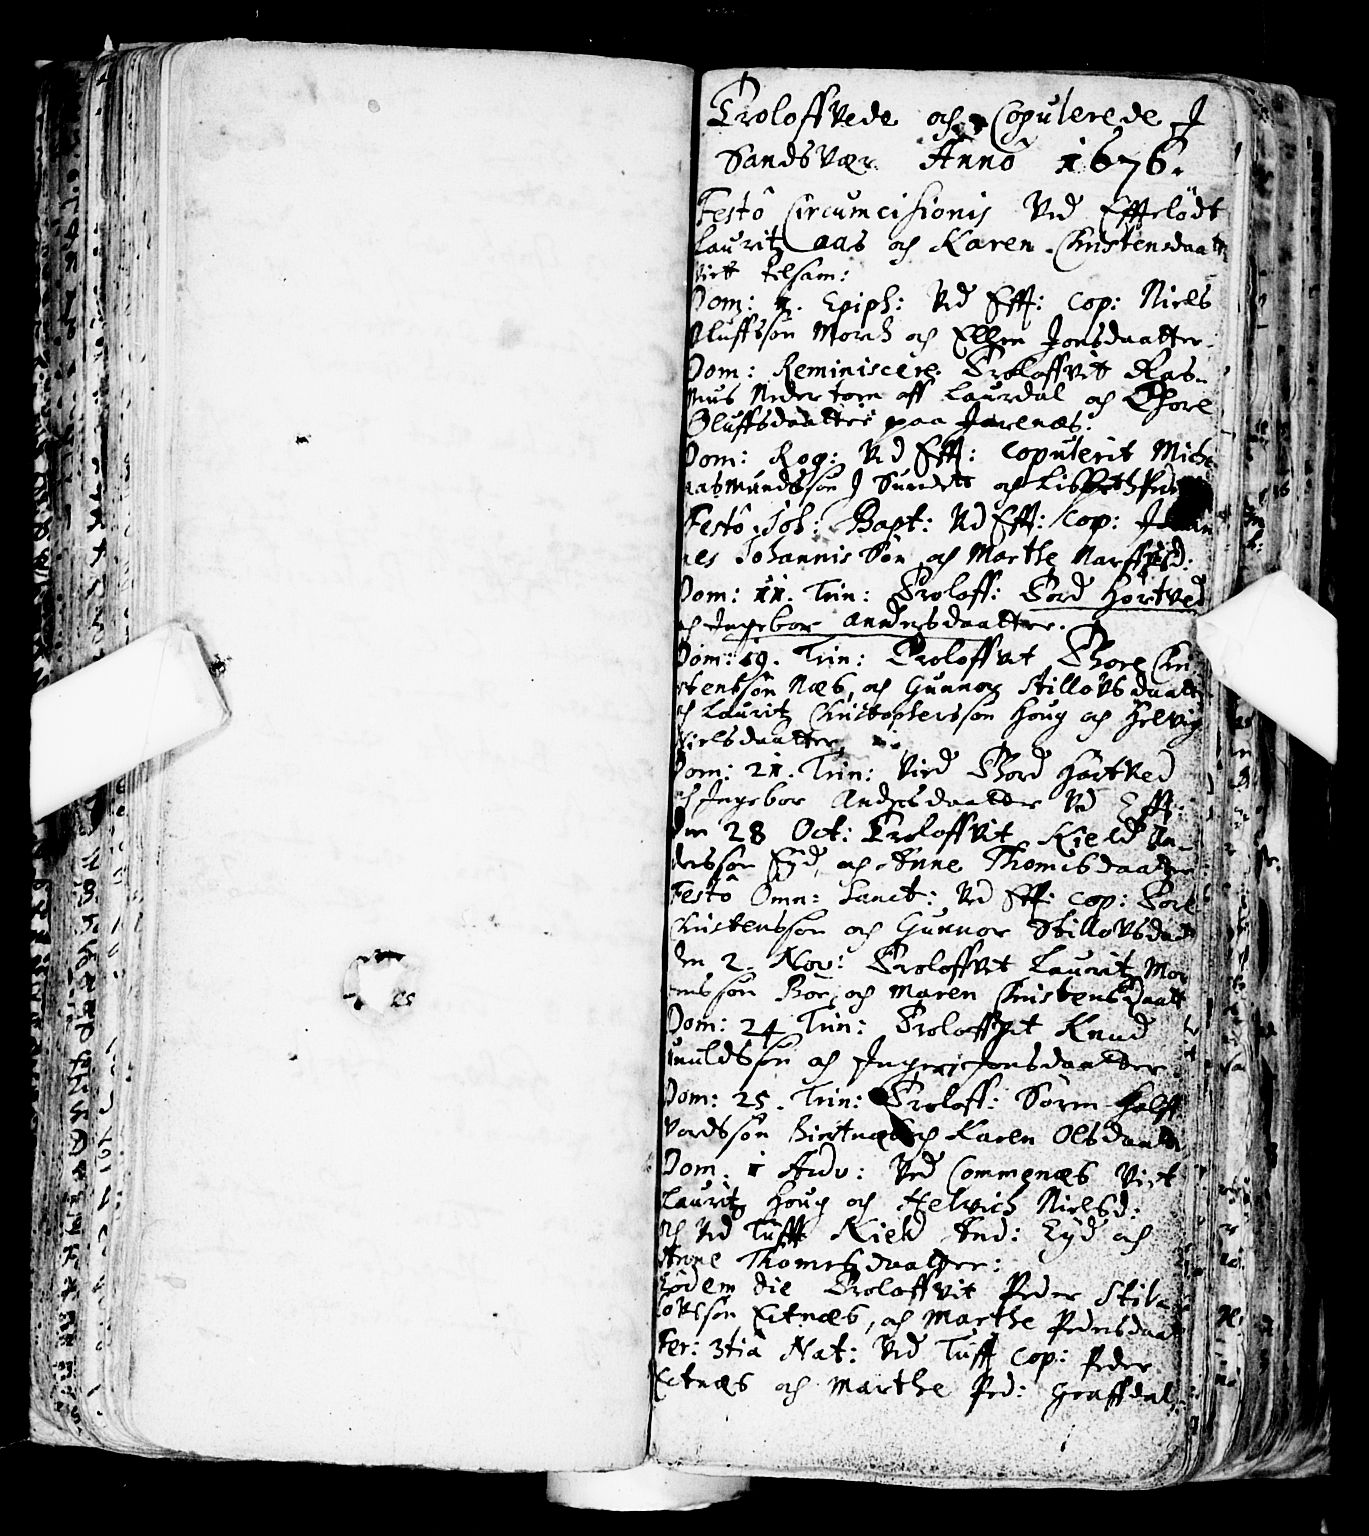 Troloffvede och Copulerede J
Sandsvær Anno 1676.
Festô Circumcisionis Ved Efftelödt
Lauritz Aas och Karen Christensdaatt
viet tilsam:
Dom: 1. Epiph: Ved Efft: Cop: Niels
Oluffssøn Morch och Ellen Jonsdaatter.
Dom: Reminiscere Troloffvit Ras-
mus Nedertorn aff Laurdal och Thore
Oluffsdaatter paa Jarenæs.
Dom: Rog: Ved Efft: Copulerit Mich
aasmundssøn J Sundet och Lisbeth
Festô Joh: Bapt: Ved Efft: Cop:
nes Johannis Søn och Marthe
Dom: 11. Trin: Troloff: Tord Hørtved
och Ingebor Andersdaatter.
Dom: 19. Trin: Troloffvit Thore Chri
stenssøn Næs, och Gunnor Stillovsdaatt
och Lauritz Christophersson Houg och Helvig
Nielsdaatter.
Dom: 21. Trin: Vied Thord Hørtved
och Ingebor Andersdaatter Ved Efft:
den 28 Oct: Troloffvit Kield An-
derssøn Eyd, och Anne Thomesdaatter
Festô Omn: Sanct: Ved Efft: Cop: Tore
Christenssøn och Gunnor Stillovsdaat
den 2. Nov: Troloffvit Lauritz Mor
tenssøn Boe, och Maren Christensdaatt
Dom: 24 Trin: Troloffvit Knud
och Ingeri Jonsdaatter.
Dom: 25. Trin: Troloff: Sören Half
vordssøn och Karen Olsdaatt
Dom. 1 Adv: Ved Commenæs Viet
Lauritz Houg och Helvich Nielsd:
och Ved Tufft Kield And: Eyd och
Anne Thomesdaatter:
Eodem die Troloffvit Peder Stil
lovssøn Eitnæs, och Marthe Pedersdaat
Fer: 3tia Nat: Ved Tufft Cop: Peder
Eitnæs och Marthe Ped: Graffdal